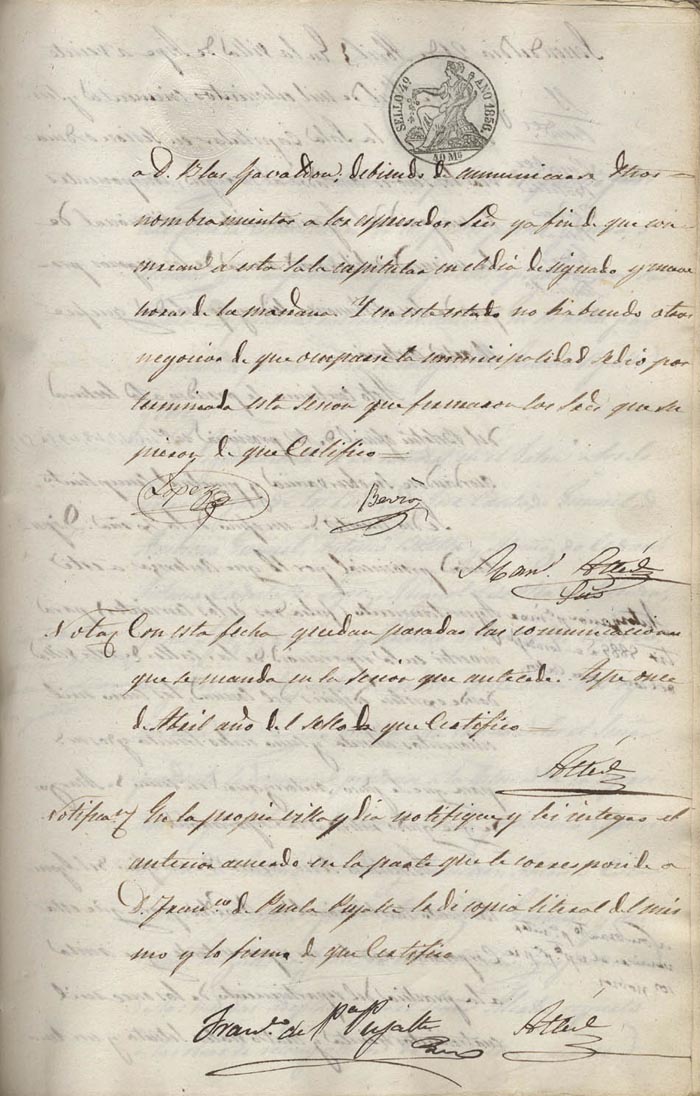 SELLO 4º AÑO 1856.
40 Ms
a D. Blas debiendo de comunicarse dhos
nombramientos a los espresados Sres y a fin de que con-
a esta Sala capitular en el dia designado y nueve
horas de la mañana. Y en este estado no habiendo otros
negocios de que ocuparse la municipalidad se dió por
terminada esta sesion que firmaron los Sres que su-
pieron de que Certifico =
Lopez
Berrò
Man.l
Srio
Nota Con esta fecha quedan pasadas las comunicaciones
que se manda en la sesion que antecede. Aspe once
de Abril año del sello de que Certifico =
Notifican En la propia villa y dia notifique y lei integro el
anterior acuerdo en la parte que le corresponde a
D. Franco de Paula Pujalte le di copia literal del mis-
mo y lo firma de que Certifico
Franco de Pa Pujalte